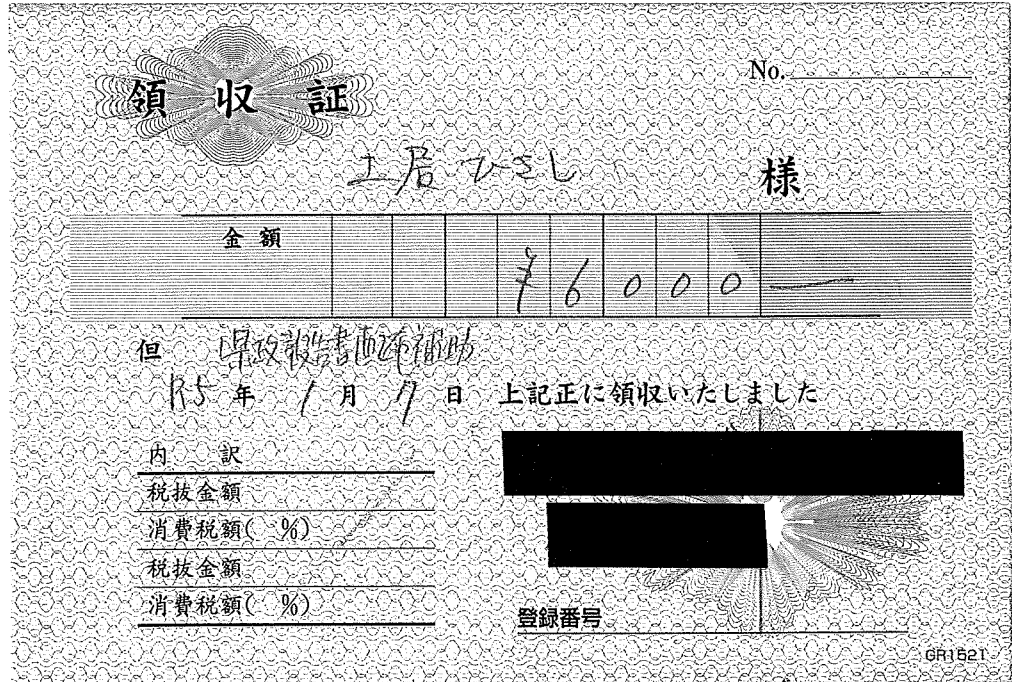 領収証
No.
土居ひさし 様
金額 ¥6000-
但 県政報告書配布補助
R5年1月7日 上記正に領収いたしました
内訳
税抜金額
消費税額( %)
税抜金額
消費税額( %)
登録番号
GR1521